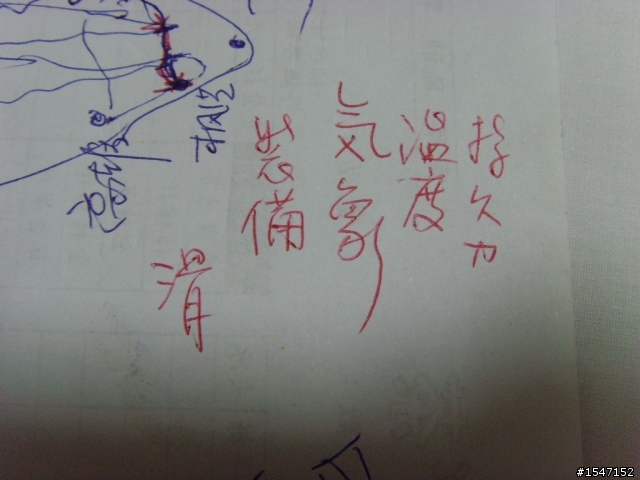 持久力
溫度
氣象
裝備
滑
#1547152